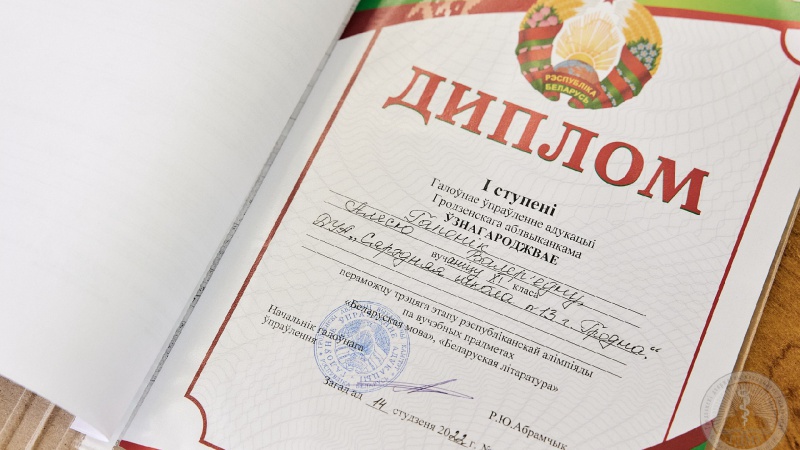 РЭСПУБЛІКА
БЕЛАРУСЬ
ДИПЛОМ
І ступені
Галоўнае ўпраўленне адукацыі
Гродзенскага аблвыканкама
ЎЗНАГАРОДЖВАЕ
Гапанік
Алесю Валер'еўну,
вучаніцу XI класа
ДУА „Сярэдняя школа п 13 г. Гродна."
пераможцу трэцяга этапу рэспубліканскай алімпіяды
па вучэбных прадметах
«Беларуская мова», «Беларуская літаратура»
Начальнік галоўнага
ўпраўлення
Р.Ю.Абрамчык
Загад ад 14 студзеня 2022 г. №